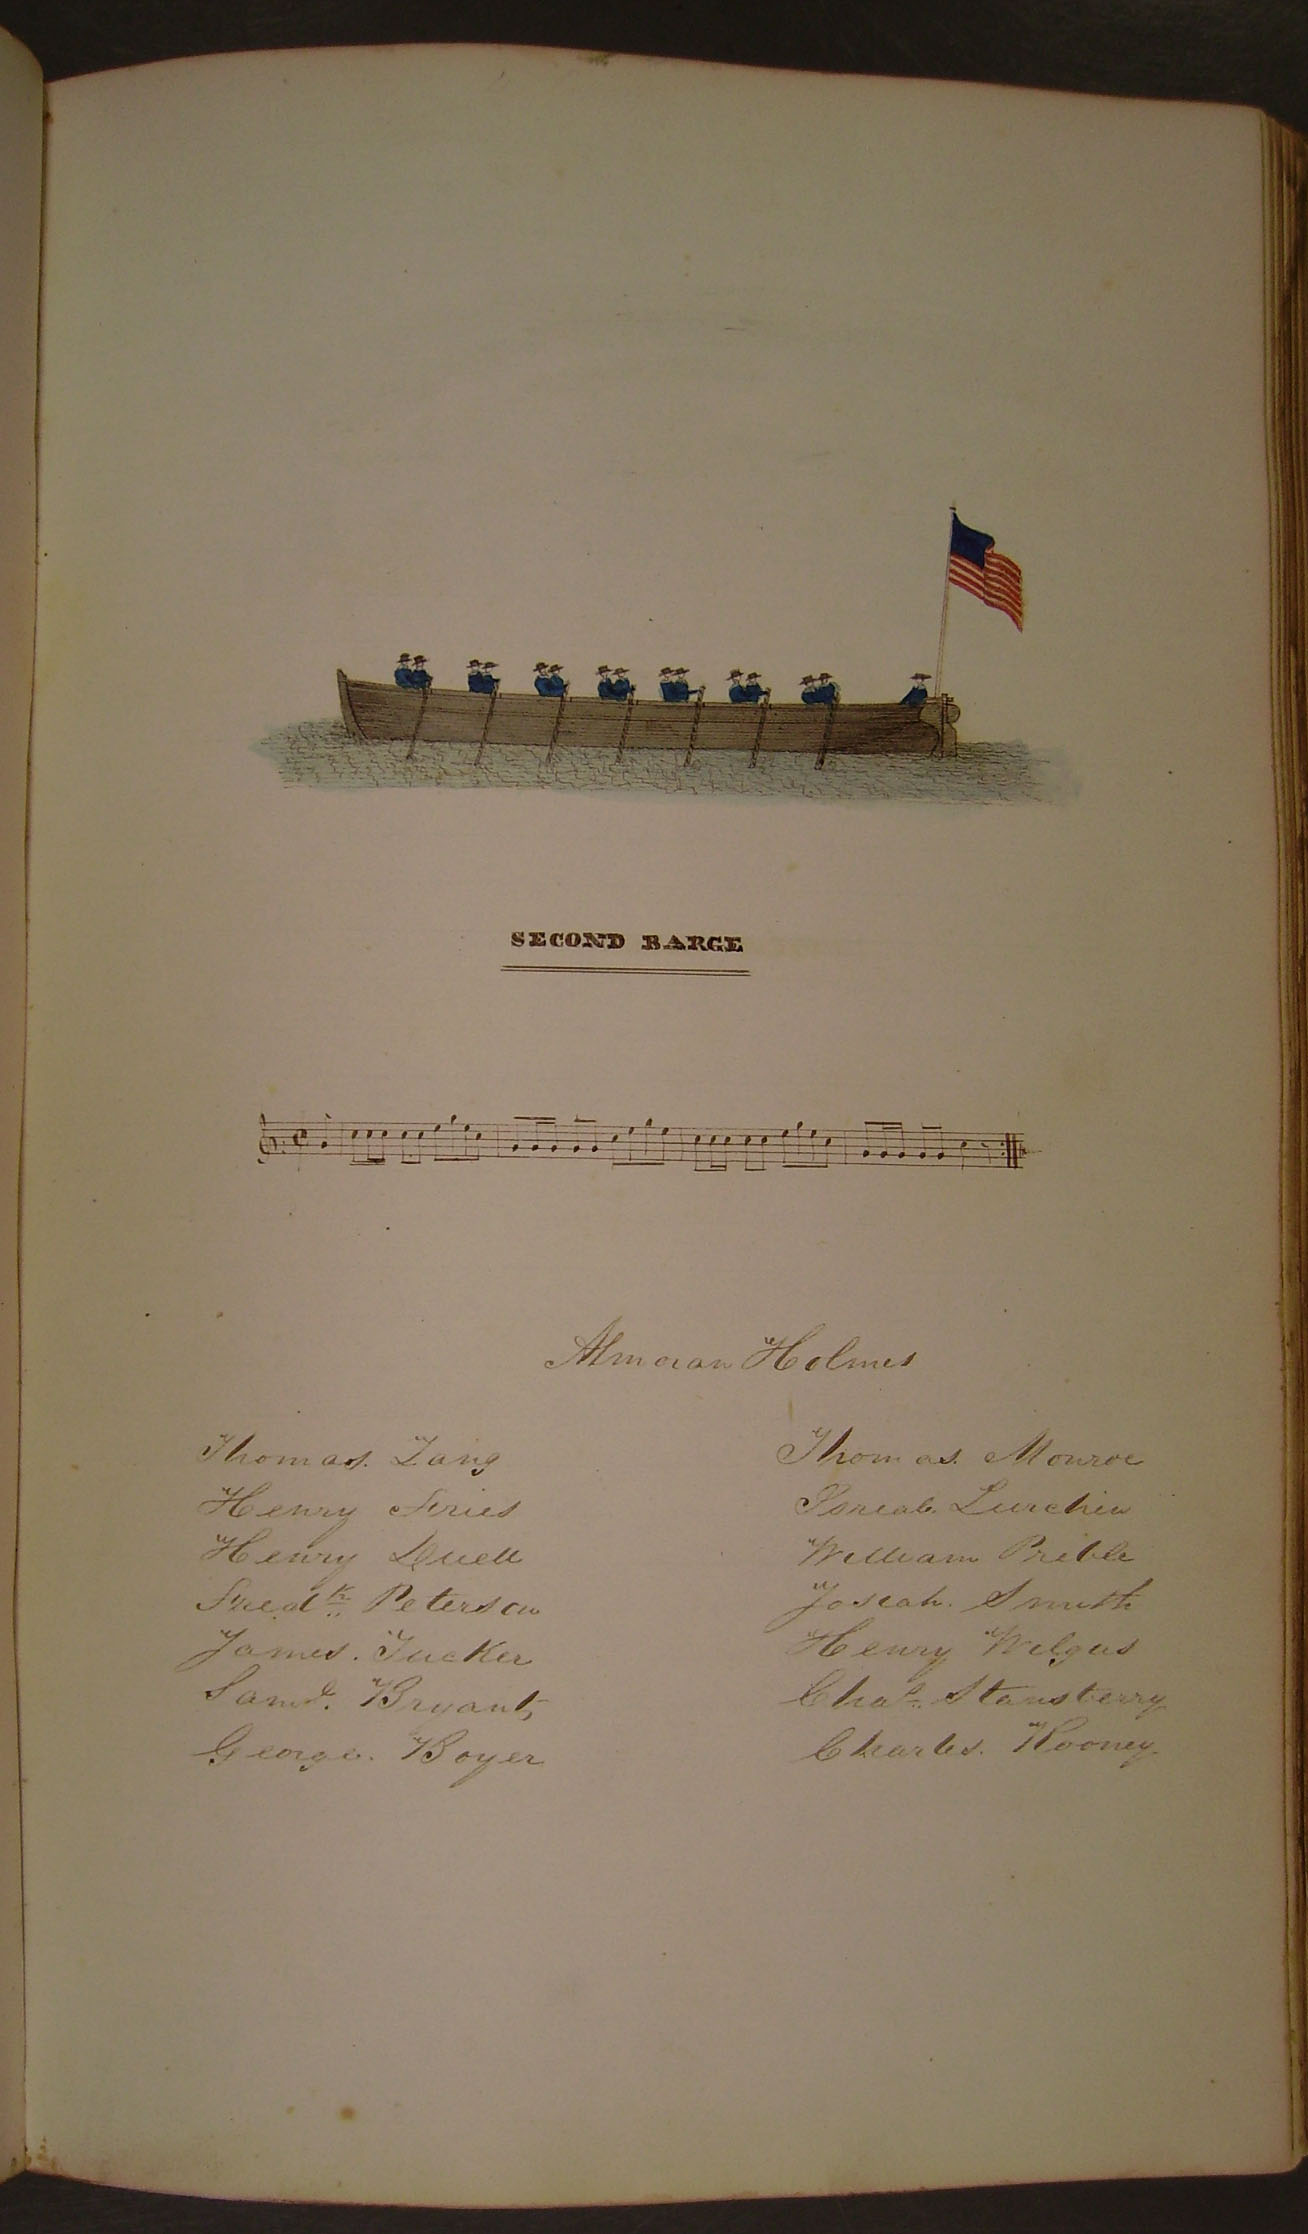 SECOND BARGE
Almoran Holmes
Thomas. Lang
Henry Fries
Henry Duell
Fredk. Peterson
James. Tucker
Saml. Bryant,
George. Boyer
Thomas. Monroe
William Prible
Josiah. Smith
Henry Wilgus
Chas. Stansberry
Charles. Rooney